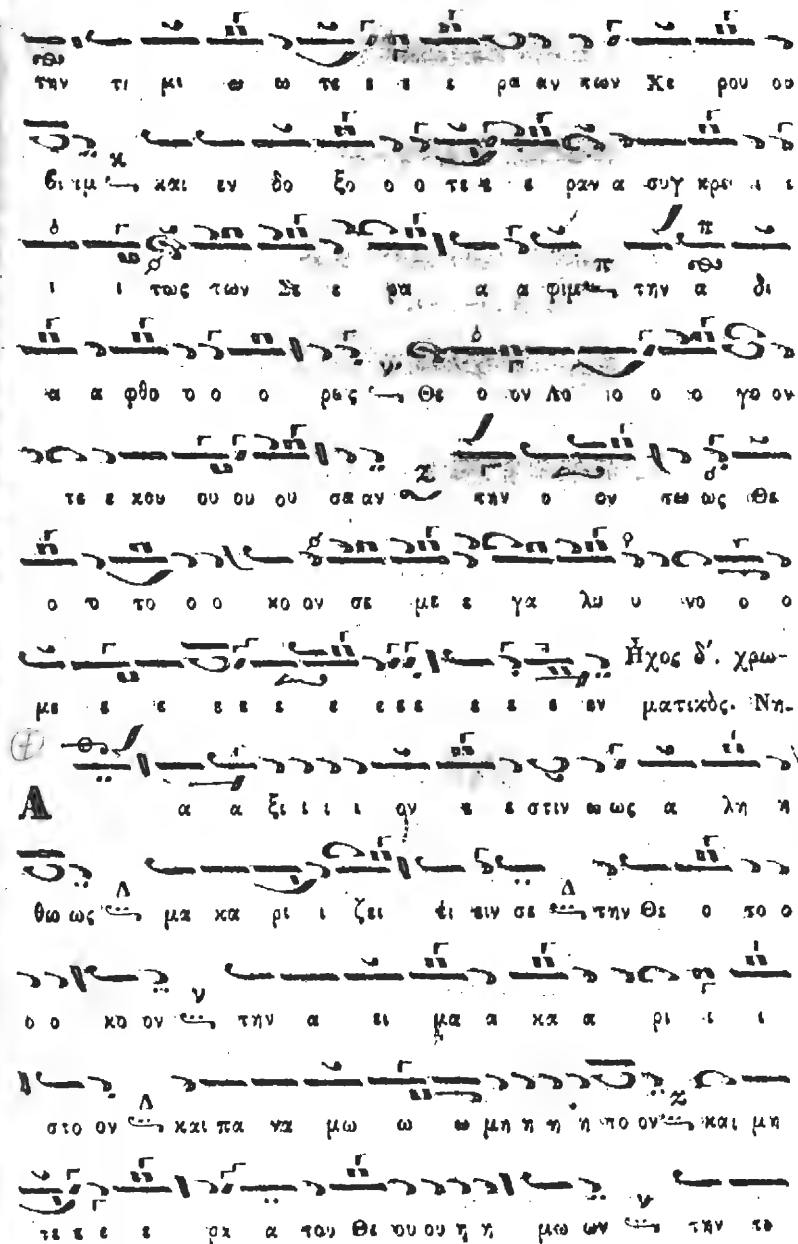 την τι μι ω ω τε ε ε ε ρα αν των Χε ρου ου
βι ιμ και εν δο ξο ο ο τε ε ε ε ραν α συγ κρι ι ι
ι ι τως των Σε ε ρα α α φιμ την α δι
α α φθο ο ο ο ρως Θε ο ον Λο ο ο ο γο ον
τε ε κου ου ου ου σα αν την ο ον τω ως Θε
ο ο το ο ο κο ον σε με ε γα λυ υ νο ο ο
με ε ε ε ε ε ε ε ε ε ε ε ε ε εν
Ἦχος δ΄. χρωματικὸς. Νη.
Α α α ξι ι ι ι ον ε ε στιν ω ως α λη η
θω ως μα κα ρι ι ζει ει ειν σε την Θε ο το ο
ο ο κο ον την α ει μα α κα α ρι ι ι ι
στο ον και πα να μω ω ω μη η η η το ον και μη
τε ε ε ε ρα α του Θε ου ου η η μω ων την τι